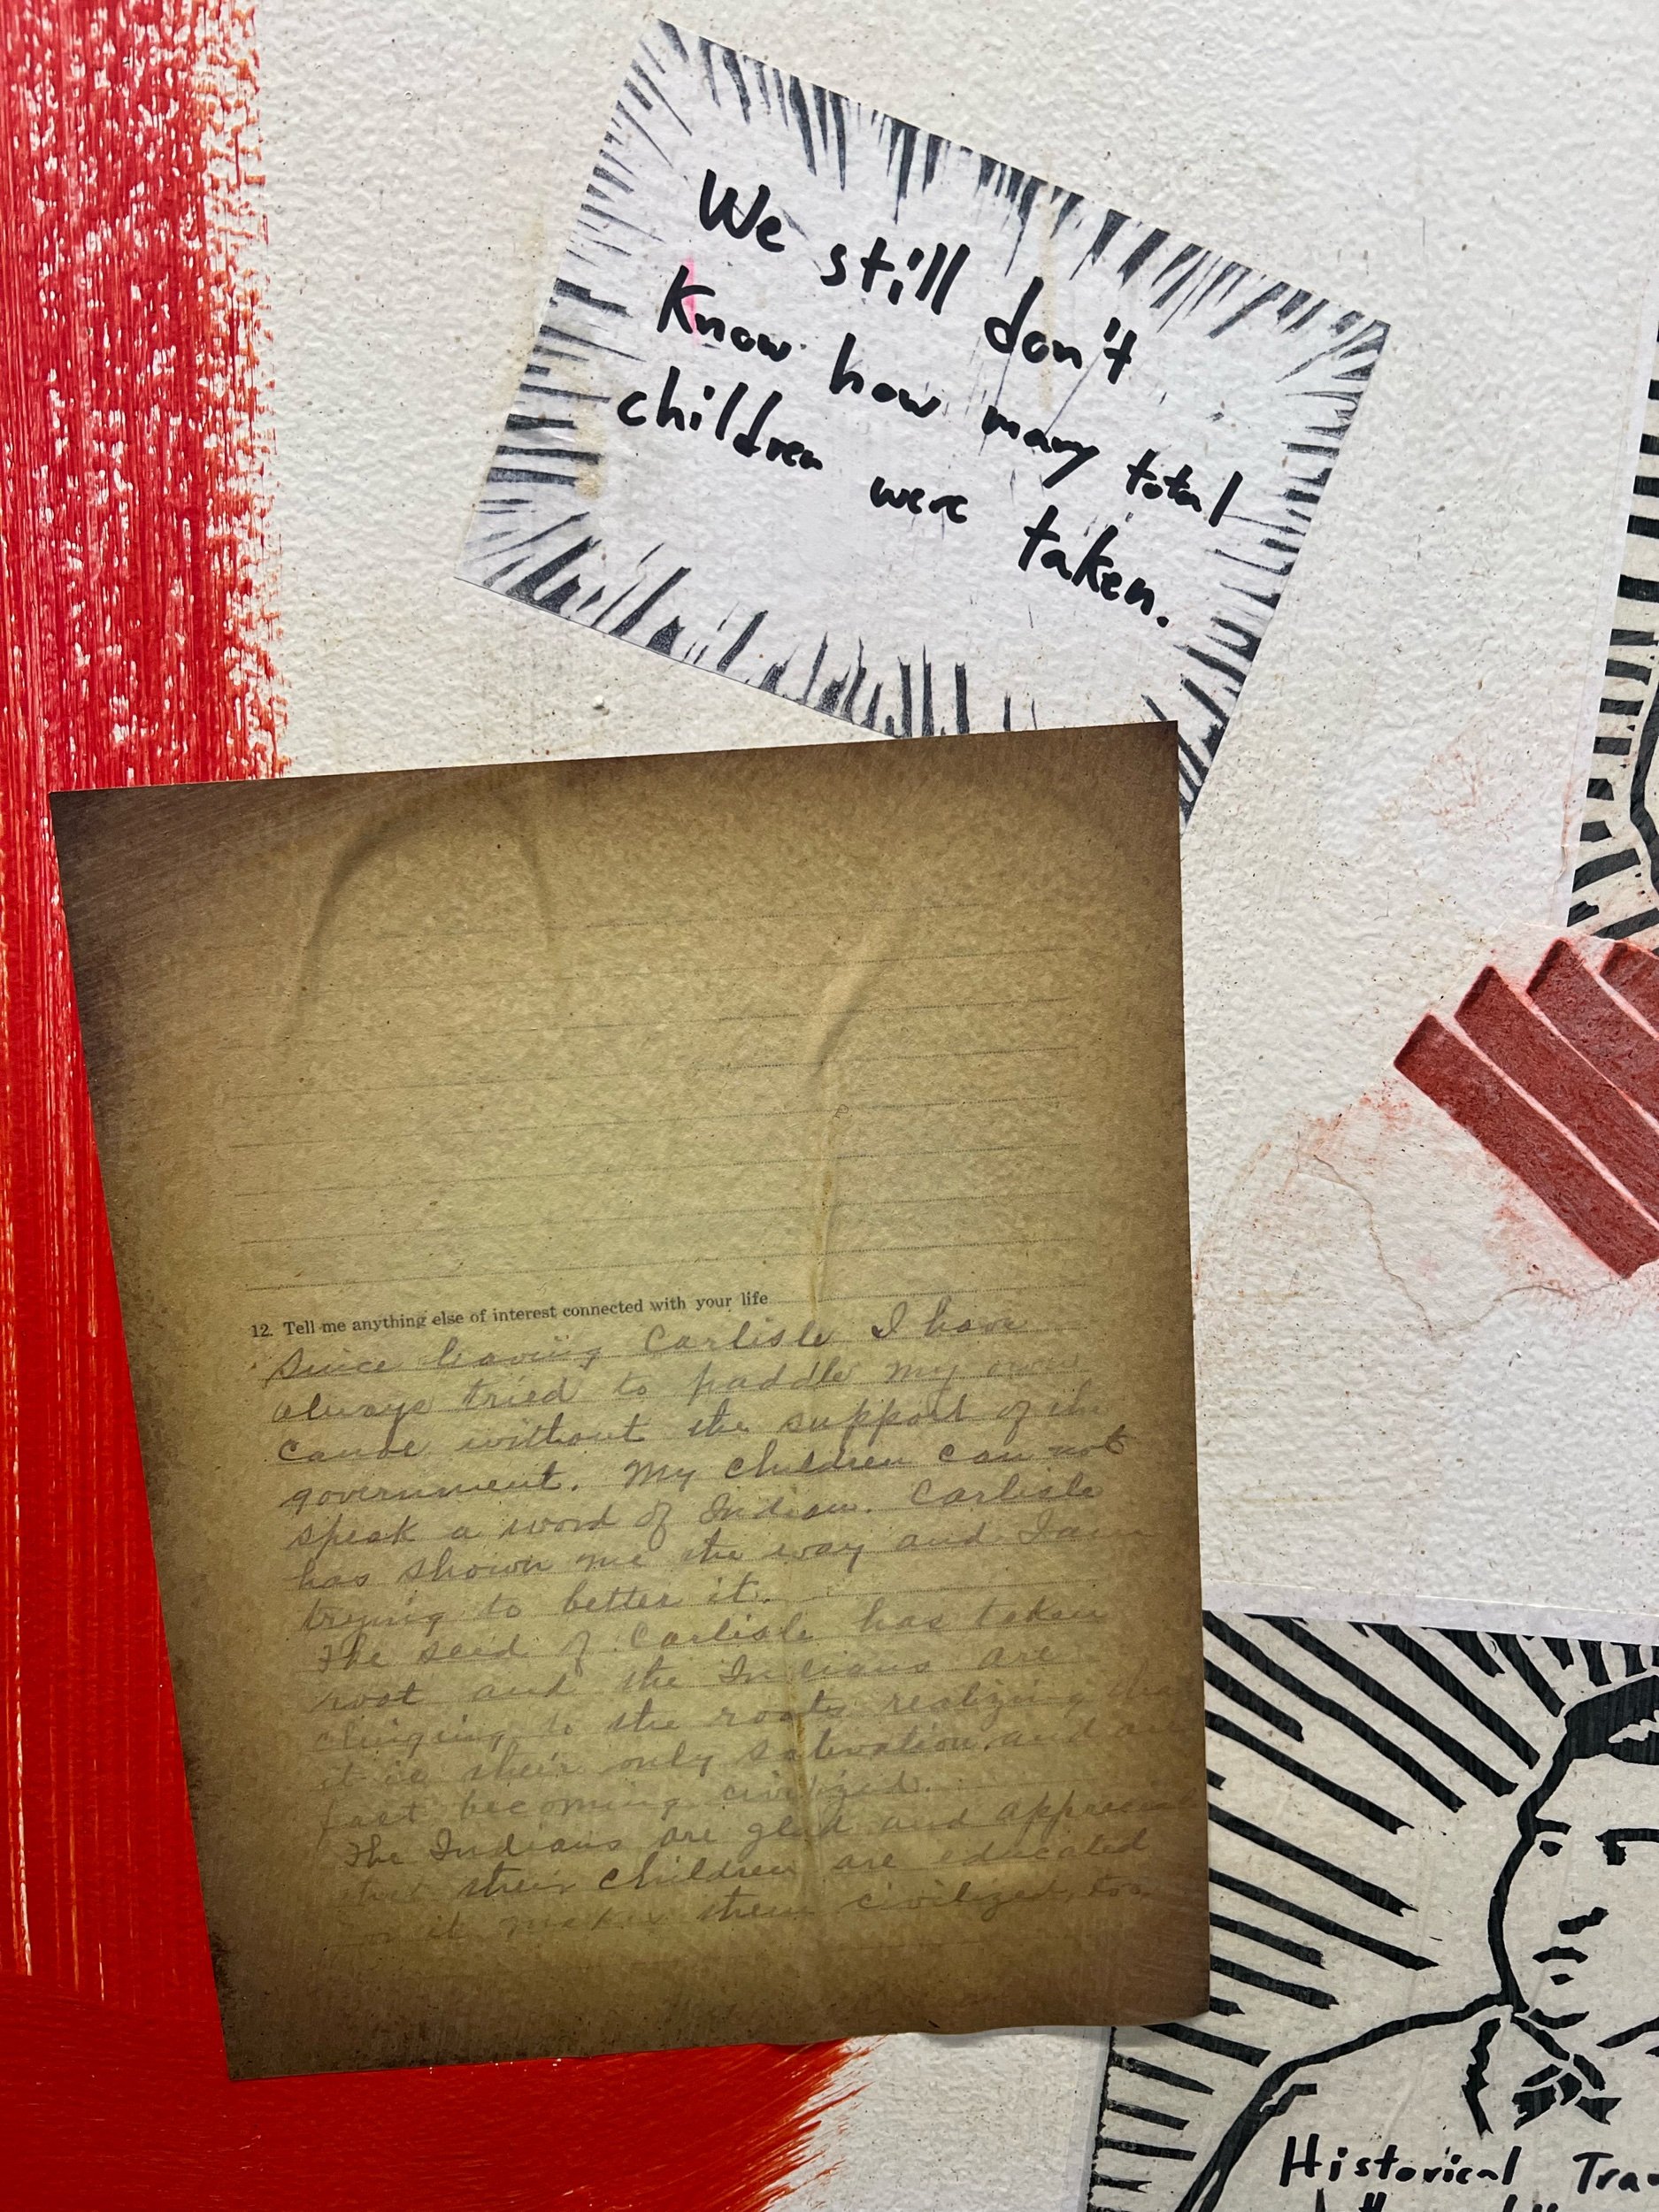 We still don't
Know how many total
children were taken.
12. Tell me anything else of interest connected with your life
Since leaving Carlisle I have
always tried to paddle my own
canoe without the support of the
government. My children can not
speak a word of Indian. Carlisle
has shown me the way and I am
trying to better it.
The seed of Carlisle has taken
root and the Indians are
clinging to the roots realizing that
it is their only salvation, and are
fast becoming civilized.
The Indians are glad and
that their children are educated
it makes them civilized, too
Historical